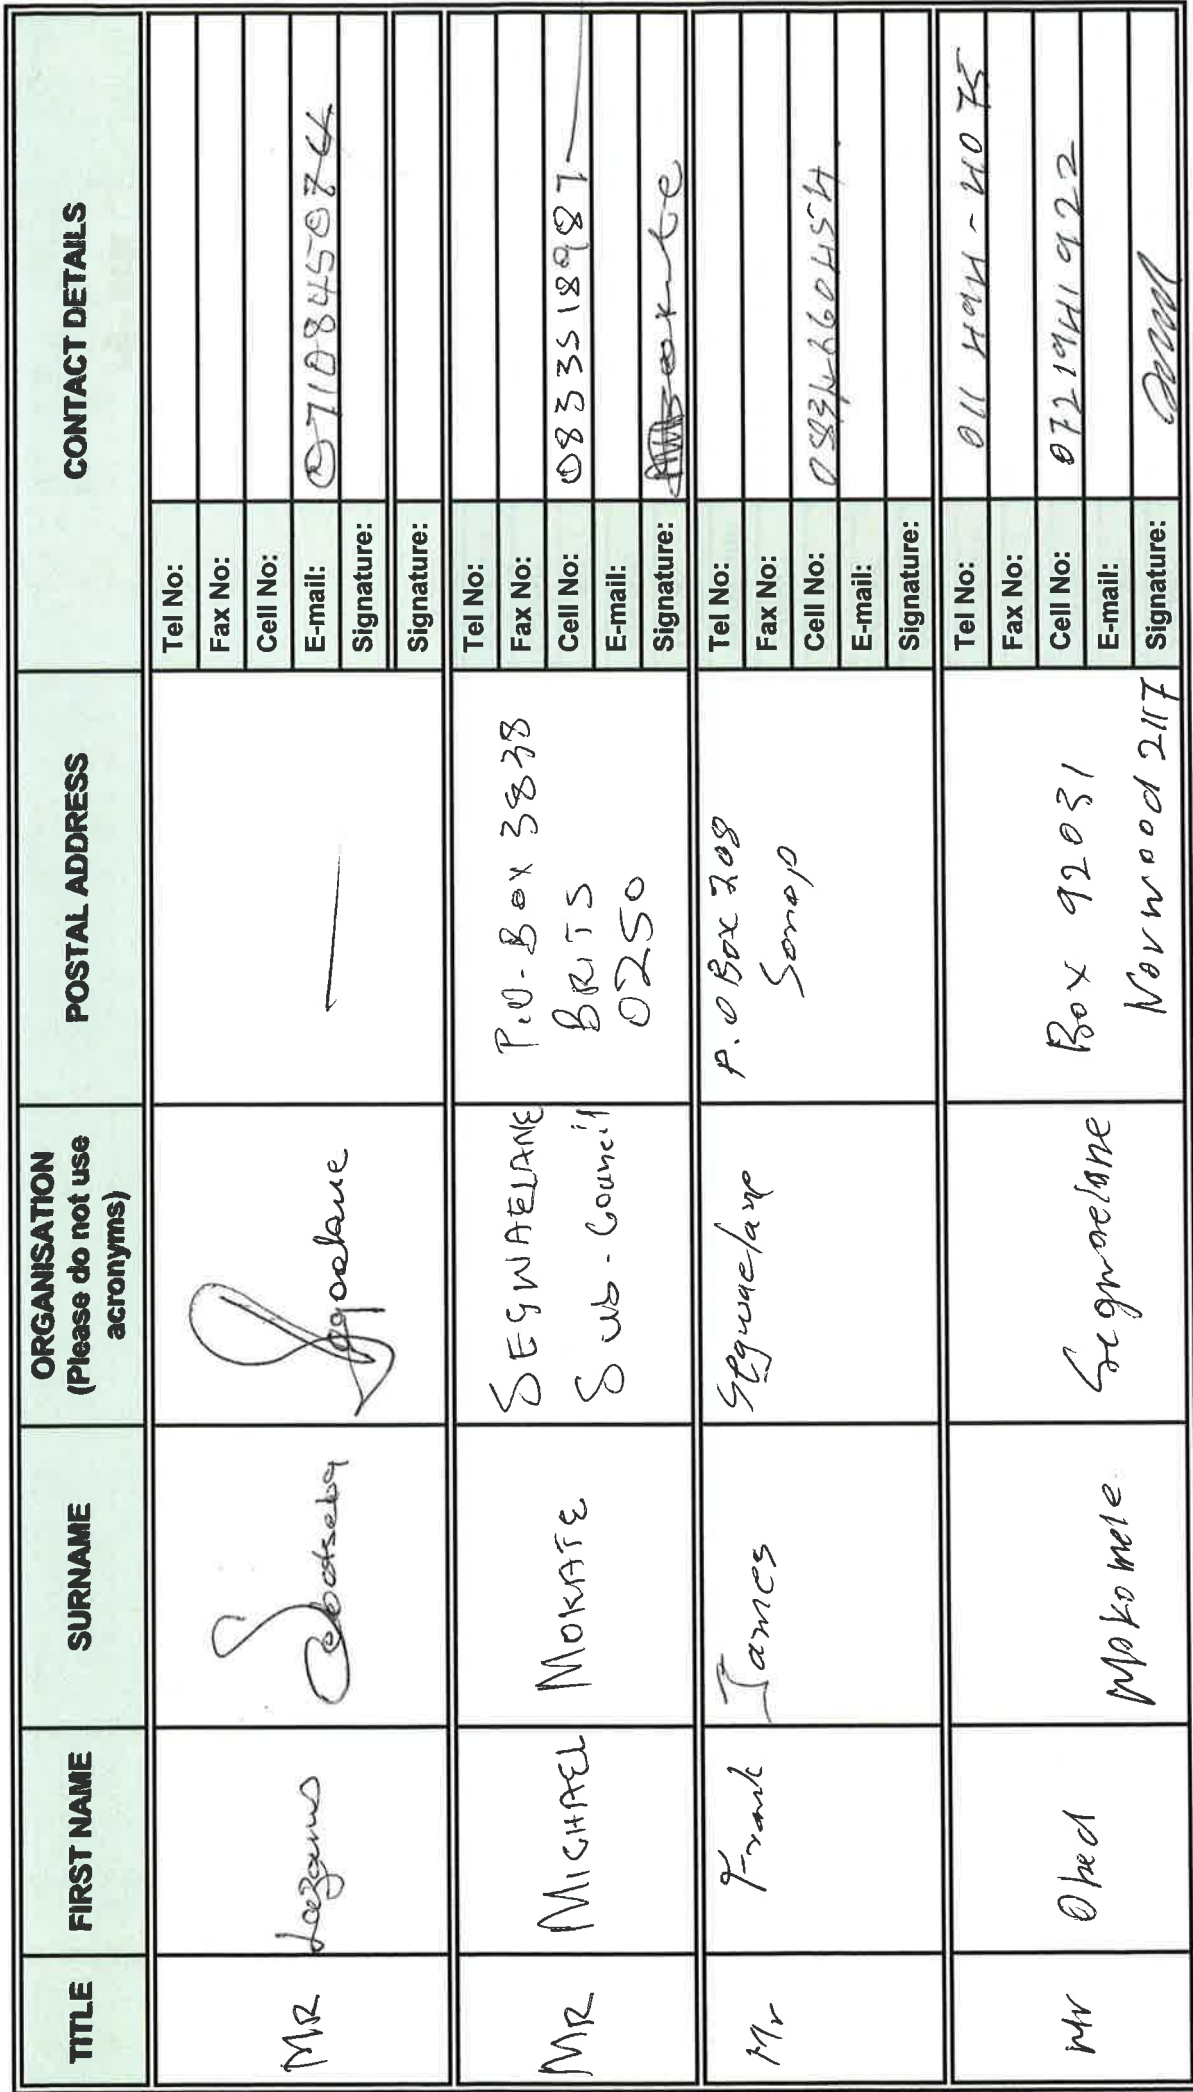 TITLE
FIRST NAME
SURNAME
ORGANISATION
(Please do not use
acronyms)
POSTAL ADDRESS
CONTACT DETAILS
MR
Tel No:
Fax No:
Cell No:
E-mail: 0710845074
Signature:
Signature:
MR
MICHAEL
MOKATE
SEGWAELANE
Sub-Council
P.O-Box 3838
BRITS
0250
Tel No:
Fax No:
Cell No: 0833518987
E-mail:
Signature: Mokate
Mr
Frank
James
Segwaelane
P.O Box 208
Sonop
Tel No:
Fax No:
Cell No: 0834660454
E-mail:
Signature:
Mr
Obed
Mokomele
Segwaelane
Box 92031
Norwood 2117
Tel No: 011 494-4075
Fax No:
Cell No: 0721941922
E-mail:
Signature: